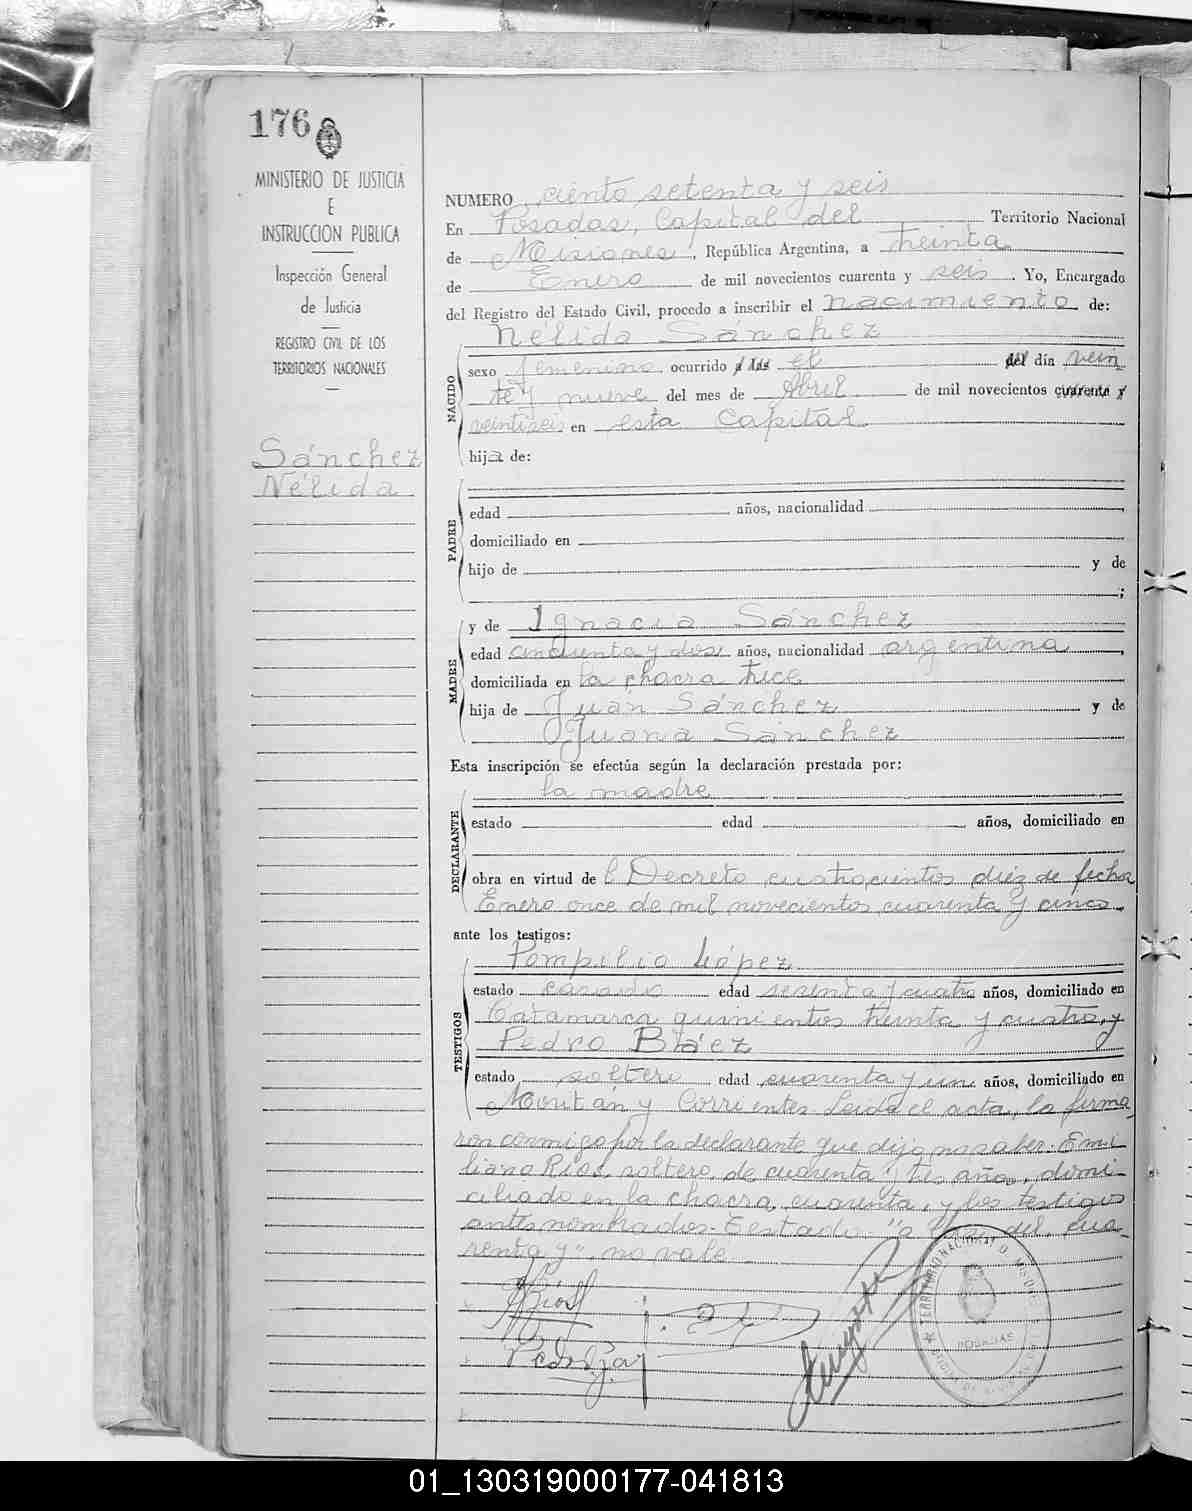 176
MINISTERIO DE JUSTICIA
E
INSTRUCCION PUBLICA
Inspección General
de Justicia
REGISTRO CIVIL DE LOS
TERRITORIOS NACIONALES
Sánchez
Nélida
NUMERO ciento setenta y seis
En Posadas, Capital del Territorio Nacional
de Misiones, República Argentina, a treinta
de Enero de mil novecientos cuarenta y seis. Yo, Encargado
del Registro del Estado Civil, procedo a inscribir el nacimiento de:
NACIDO
Nélida Sánchez
sexo femenino, ocurrido a las el del día vein
te y nueve del mes de Abril de mil novecientos cuarenta y
veintiseis en esta Capital
hija de:
PADRE
edad años, nacionalidad
domiciliado en
hijo de y de
;
MADRE
y de Ignacia Sánchez
edad cincuenta y dos años, nacionalidad argentina,
domiciliada en la chacra trece
hija de Juan Sánchez y de
Juana Sánchez
Esta inscripción se efectúa según la declaración prestada por:
DECLARANTE
la madre
estado edad años, domiciliado en
obra en virtud del Decreto cuatrocientos diez de fecha
Enero once de mil novecientos cuarenta y cinco.
ante los testigos:
TESTIGOS
Pompilio López
estado casado edad sesenta y cuatro años, domiciliado en
Catamarca quinientos treinta y cuatro, y
Pedro Bláez
estado soltero edad cuarenta y un años, domiciliado en
y Corrientes. Leida el acta, la firma
ron conmigo por la declarante que dijo no saber. Emi
liano Ríos, soltero, de cuarenta y tres años, domi-
ciliado en la chacra cuarenta, y los testigos
antes nombrados. Testado: "a las, del, cua-
renta y". no vale
TERRITORIO NACIONAL D. MISIONES
POSADAS
01_130319000177-041813